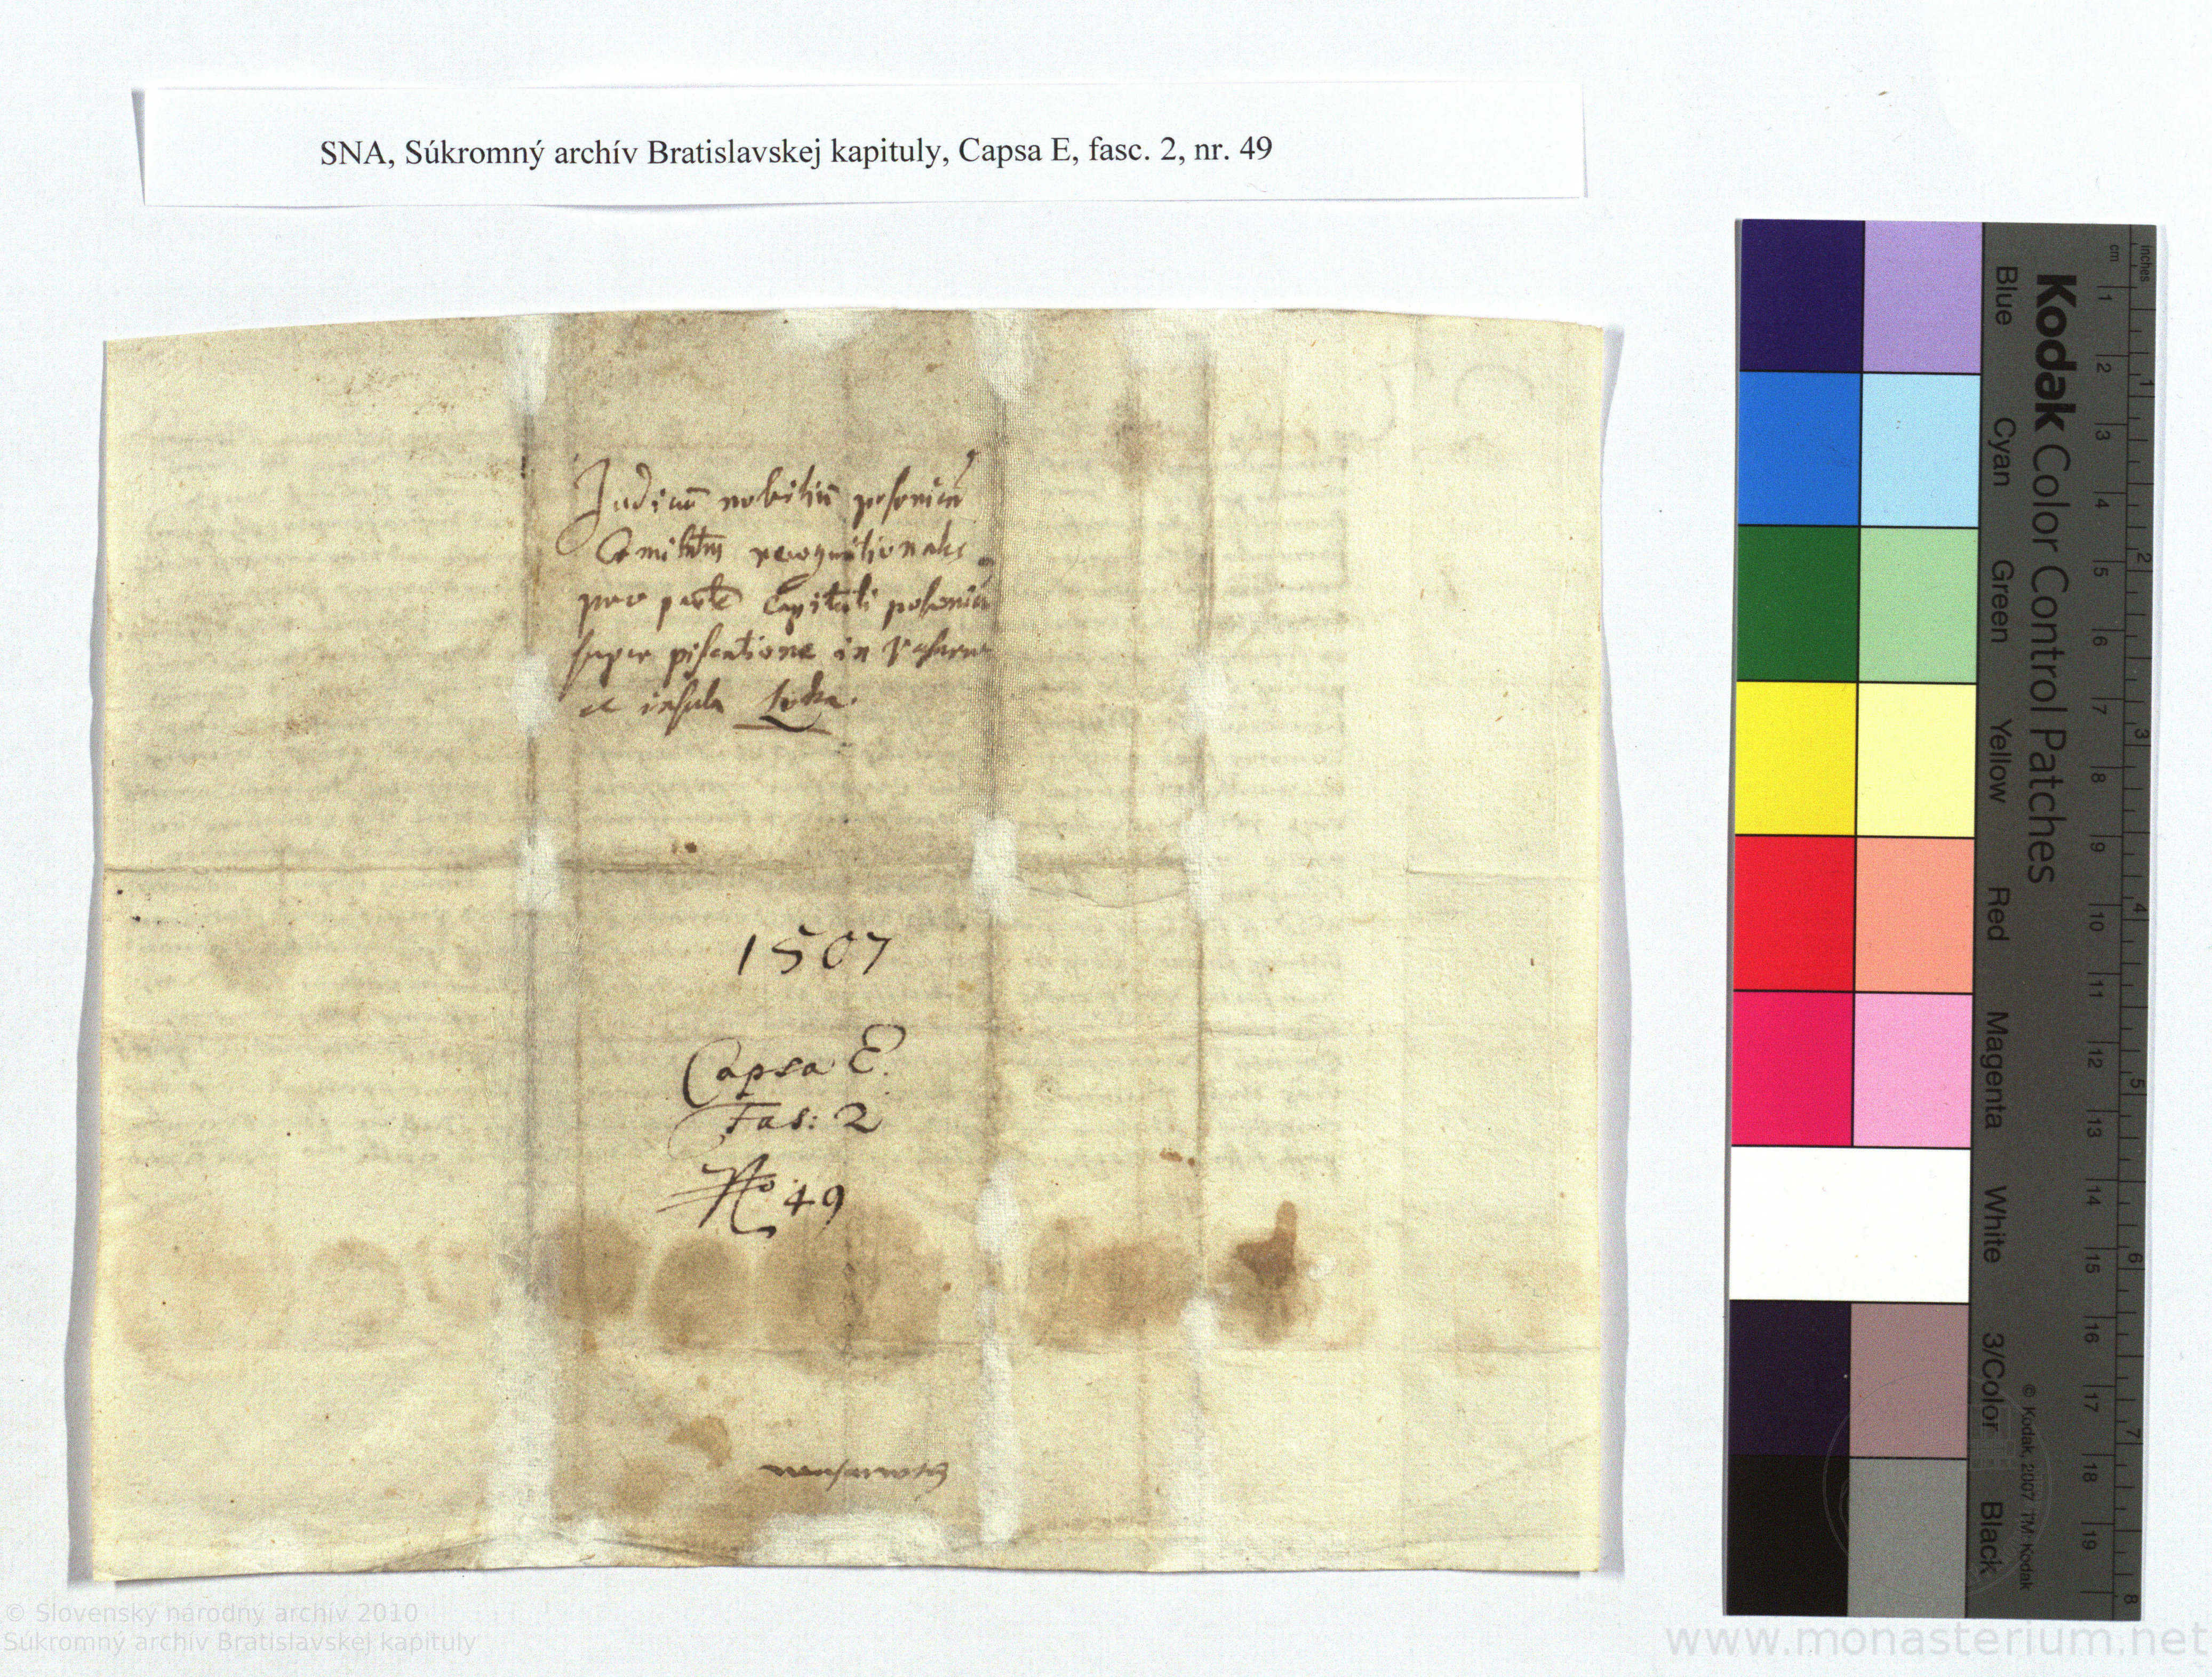 SNA, Súkromný archív Bratislavskej kapituly, Capsa E, fasc. 2, nr. 49
Judicū nobiliū posonień
Comitatus recognitionales
pro parte Capituli posonień
super piscatione in
et insula Luka.
1507
Capsa E.
Fas: 2
No 49
Kodak Color Control Patches
inches
cm
Blue
Cyan
Green
Yellow
Red
Magenta
White
3/Color
Black
© Kodak, 2007 TM: Kodak
1 2 3 4 5 6 7 8 9 10 11 12 13 14 15 16 17 18 19
1 2 3 4 5 6 7 8
© Slovenský národný archív 2010
Súkromný archív Bratislavskej kapituly
www.monasterium.net